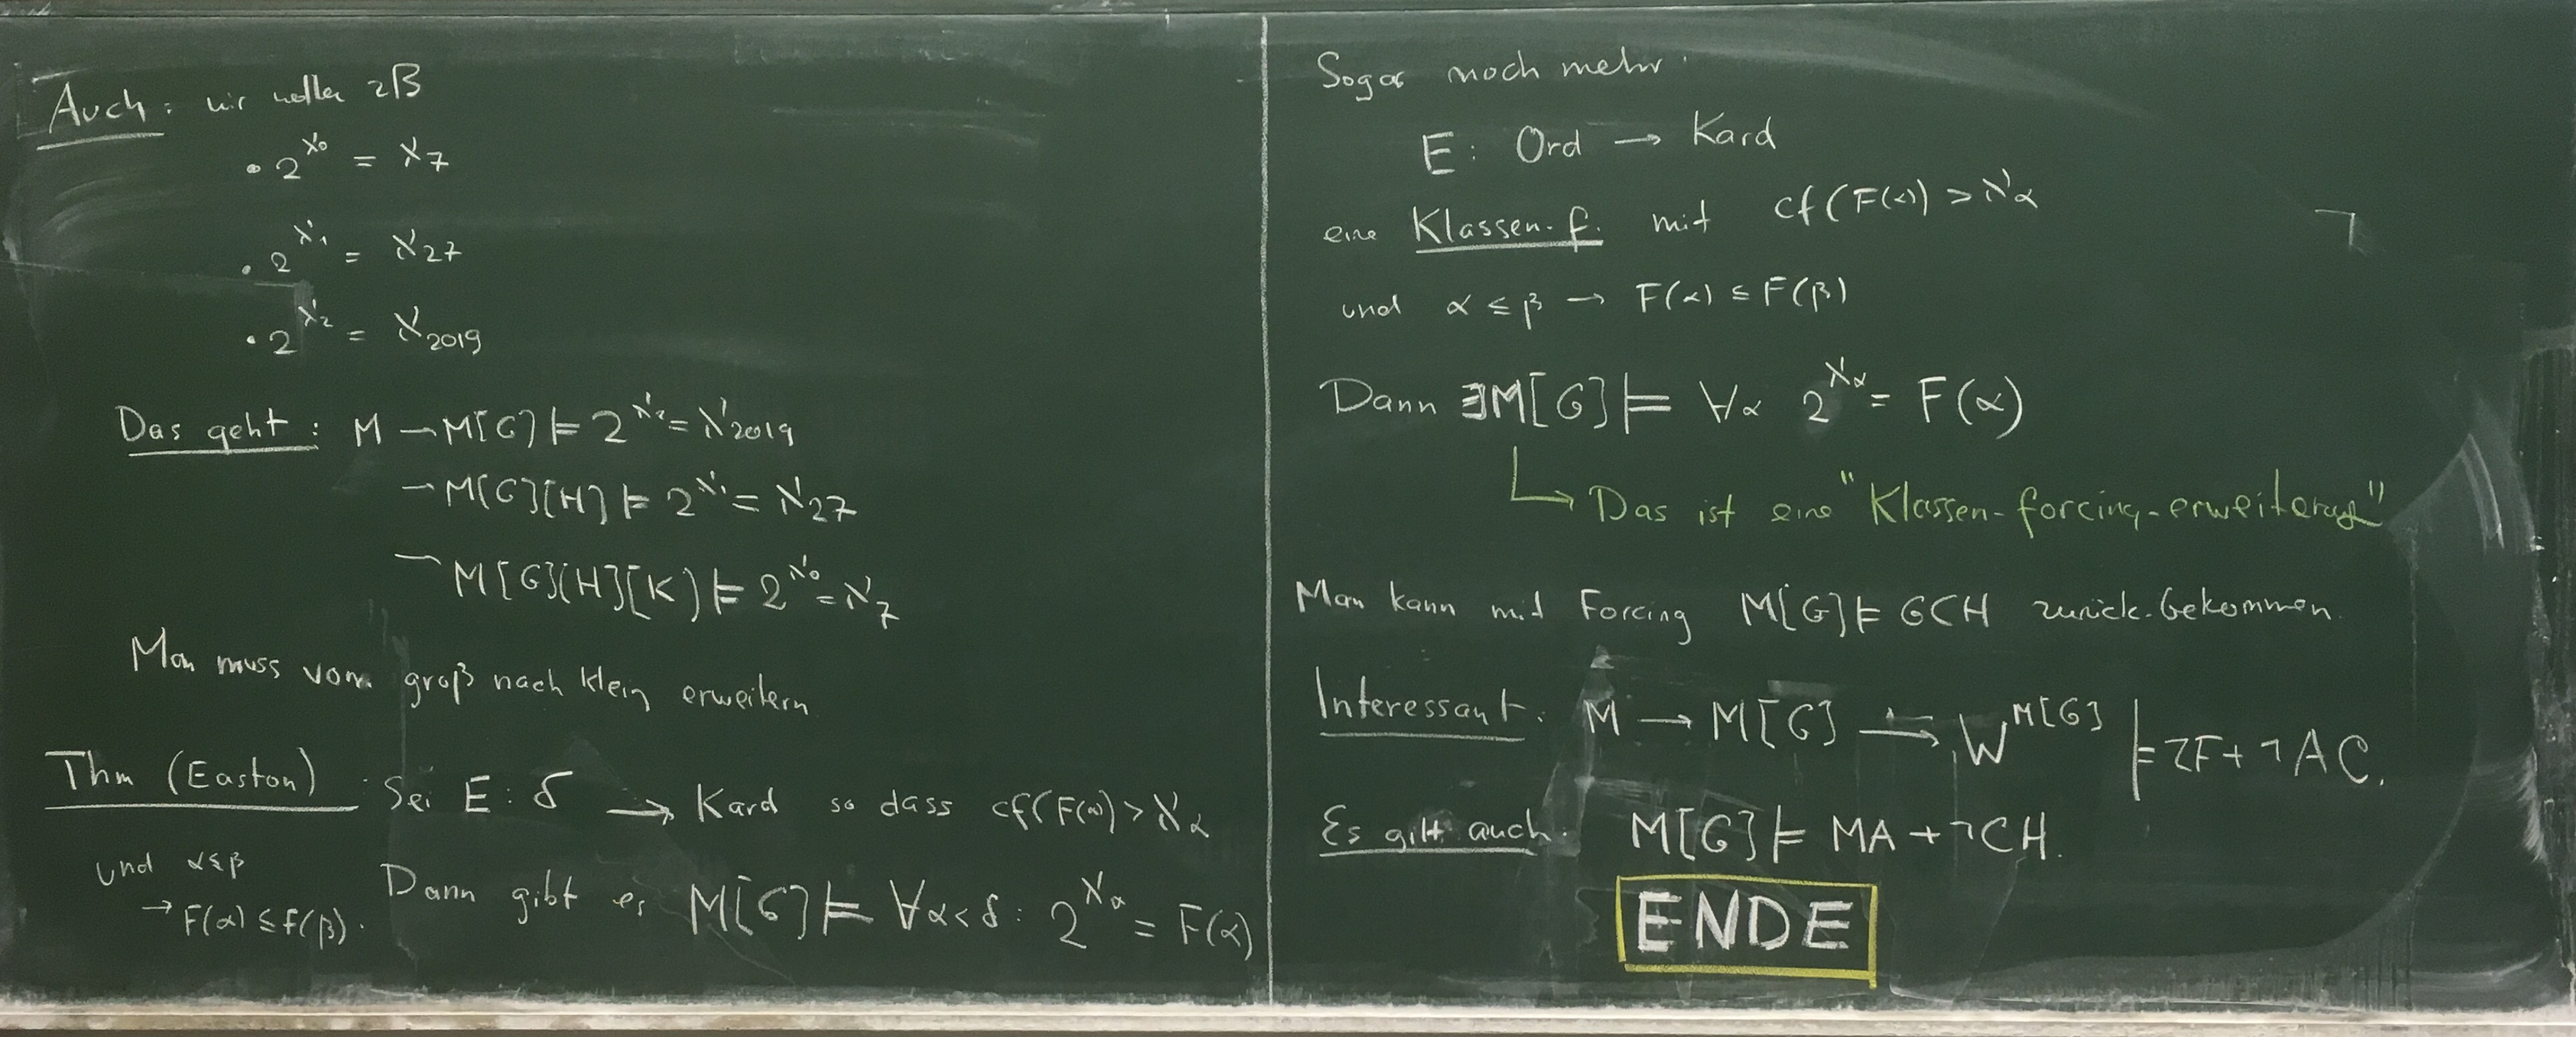 Auch: wir wollen zB
• 2^ℵ₀ = ℵ₇
• 2^ℵ₁ = ℵ₂₇
• 2^ℵ₂ = ℵ₂₀₁₉
Das geht: M → M[G] ⊨ 2^ℵ₂ = ℵ₂₀₁₉
→ M[G][H] ⊨ 2^ℵ₁ = ℵ₂₇
→ M[G][H][K] ⊨ 2^ℵ₀ = ℵ₇
Man muss vom groß nach klein erweitern
Thm (Easton): Sei E: δ → Kard so dass cf(F(α)) > ℵ_α
und α ≤ β
→ F(α) ≤ f(β).
Dann gibt es M[G] ⊨ ∀α<δ: 2^ℵ_α = F(α)
Sogar noch mehr:
E: Ord → Kard
eine Klassen-f. mit cf(F(α)) > ℵ_α
und α ≤ β → F(α) ≤ F(β)
Dann ∃M[G] ⊨ ∀α 2^ℵ_α = F(α)
↳ Das ist eine "Klassen-forcing-erweiterung"
Man kann mit Forcing M[G] ⊨ GCH zurück-bekommen.
Interessant: M → M[G] → W^M[G] ⊨ ZF + ¬AC.
Es gilt auch: M[G] ⊨ MA + ¬CH.
ENDE